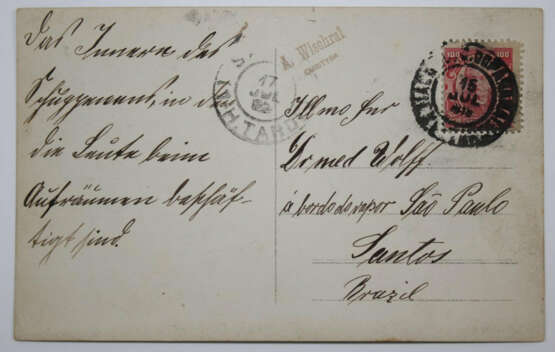 Das Innere des
Schuppens, in de
die Leute beim
Aufräumen beschäf-
tigt sind.
A. Wischral
CURITYBA
17
JUL
H. TARD
100
100
15
JUL
Illmo Snr
Dr med Wolff
á bordo do vapor São Paulo
Santos
Brazil